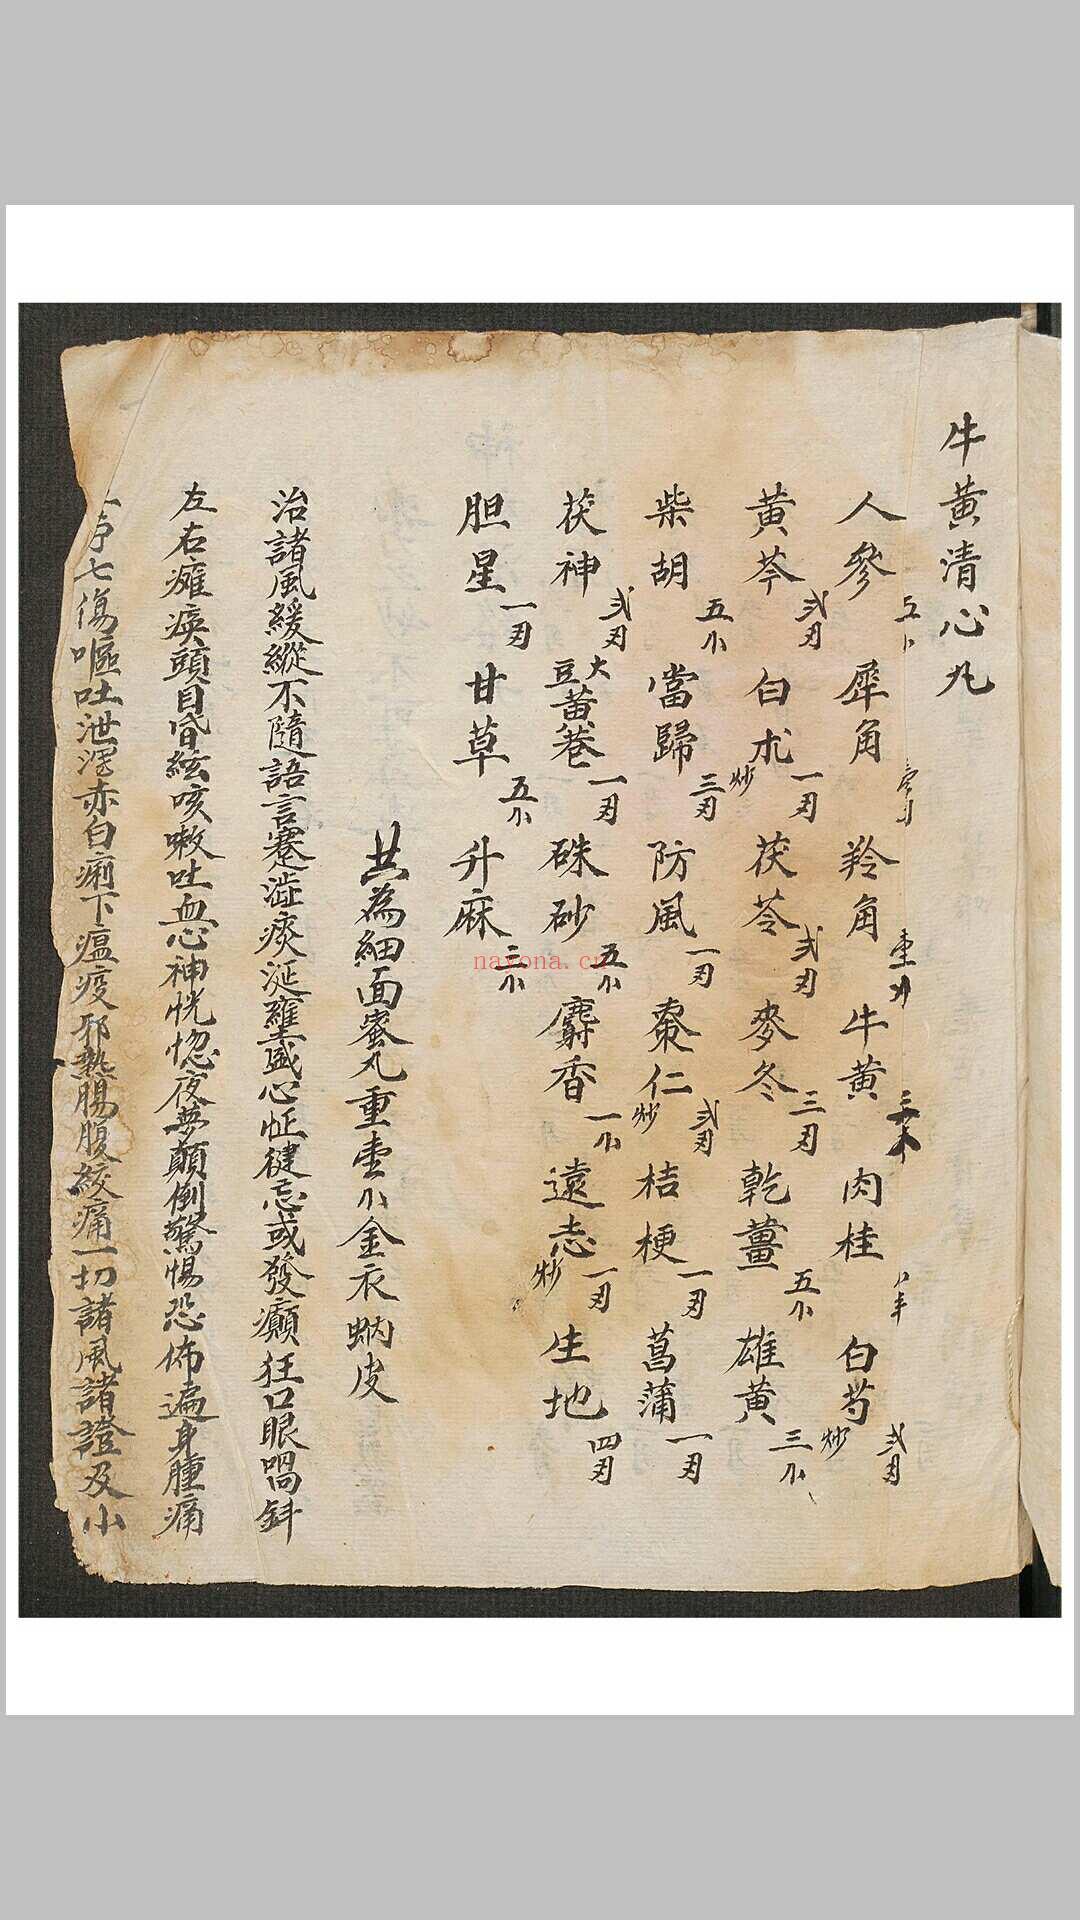 牛黄清心丸
人參 五小 犀角 羚角 壹小 牛黄 肉桂 白芍 炒 弍刃
黄芩 弍刃 白朮 炒 一刃 茯苓 弍刃 麥冬 三刃 乾薑 五小 雄黄 三小
柴胡 五小 當歸 三刃 防風 一刃 棗仁 炒 弍刃 桔梗 一刃 菖蒲 一刃
茯神 弍刃 大豆黃卷 一刃 硃砂 五小 麝香 一小 遠志 炒 一刃 生地 四刃
胆星 一刃 甘草 五小 升麻 三小
共為細面蜜丸重壹小金衣蚋皮
治諸風緩縱不隨語言蹇澁痰涎壅盛心怔健忘或發癲狂口眼喎斜
左右癱瘓頭目昏眩咳嗽吐血心神恍惚夜夢顛倒驚惕恐怖遍身腫痛
七傷嘔吐泄瀉赤白痢下瘟疫邪熱腸腹絞痛一切諸風諸證及小
nayona.cn